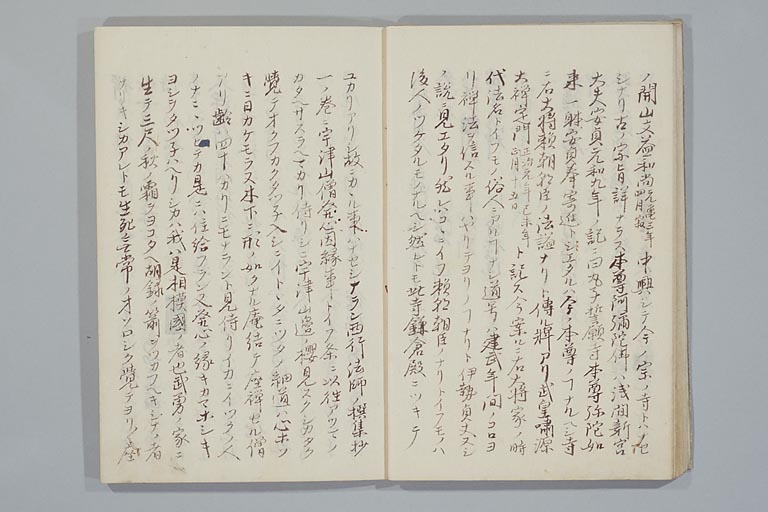 ノ開山文益和尚元亀三年四月寂中興シテ今ノ宗ノ寺トハ
シナリ古ノ宗旨詳ナラス本尊阿彌陀佛ハ浅間新宮
大夫安貞元和九年ノ記ニ曰丸子誓願寺本尊弥陀如
来一躰安貞奉寄進トシエタルハ今ノ本尊ノフナルヘシ寺
ニ右大将頼朝卿ノ法謚ナリト傳ル牌アリ武皇嘯源
大禪定門正治元年己未年正月十五日ト記ス今案ルニ右大将家ノ時
代法名トイフモノ俗人ニアルコトナシ道号ハ建武年間ノコロヨ
リ禅法ヲ信スル事ハヤリテヨリノフナリト伊勢貞丈スシ
ノ説ニ見エタリ然レハコヽニイフ頼朝卿ノナリトイフモノハ
後人ノツケタルモノナルヘシ然レトモ此寺鎌倉殿ニツキテ
ユカリアリシ故ニカヽル事ハナセシナラン西行法師ノ撰集抄
一ノ巻ニ宇津山僧発心因縁事トイフ条ニ以往アツマノ
カタヘサスラヘマカリ侍リシニ宇津山邉ノ櫻見スクシカタク
覺テオクフカクタツ子入シニイトヽタニツタノ細道ハ心ホソ
キニ日カケモラス木下ニ形ノ如クナル庵結テ座禅セル僧
アリ齢ハ四十ハカリニモナラント見侍リイカニイツクノ人
ノナニヽツヒテカ是ニハ住給フラン又発心ノ縁キカマホシキ
ヨシヲタツ子ハヘリシカハ我ハ是相模國ノ者也武勇ノ家ニ
生テ三尺ノ秋ノ霜ヲヨコタヘ胡録ノ箭ニツカフヘキシテノ者
ナリキシカアレトモ生死無常ノオソロシク覺テヨリノ座